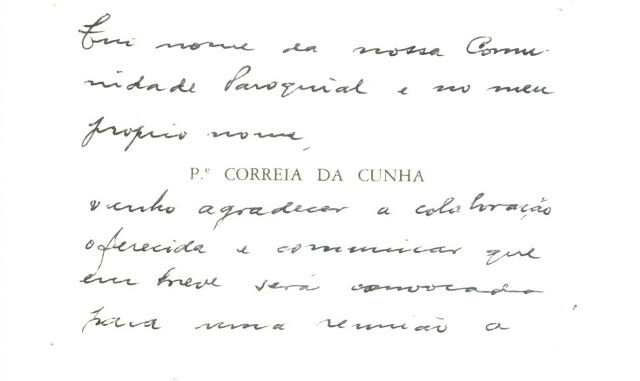 Em nome da nossa Comu-
nidade Paroquial e no meu
próprio nome,
P.e CORREIA DA CUNHA
venho agradecer a colaboração
oferecida e comunicar que
em breve será convocado
para uma reunião a